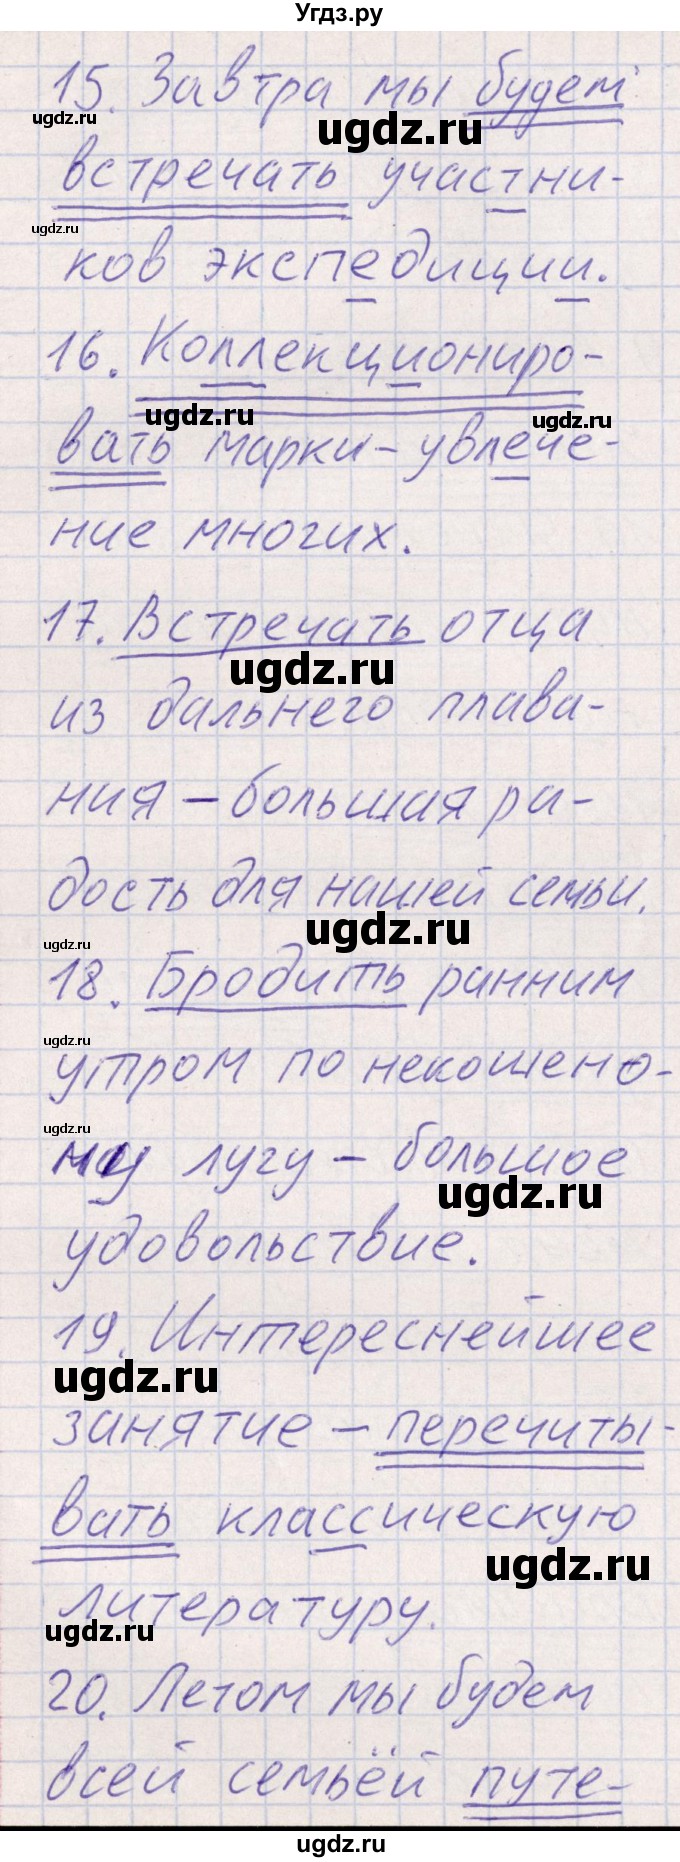 Угдз.ру
15. Завтра мы будем
ugdz.ru
ugdz.ru
встречать участни-
ugdz.ru
ков экспедиции.
16. Коллекциониро-
ugdz.ru
ugdz.ru
вать марки - увлече-
ние многих.
17. Встречать отца
ugdz.ru
из дальнего плава-
ния - большая ра-
дость для нашей семьи.
ugdz.ru
ugdz.ru
18. Бродить ранним
ugdz.ru
утром по некошено-
ugdz.ru
му лугу - большое
ugdz.ru
удовольствие.
19. Интереснейшее
ugdz.ru
занятие - перечиты-
вать классическую
ugdz.ru
литературу.
ugdz.ru
20. Летом мы будем
всей семьёй путе-
ugdz.ru